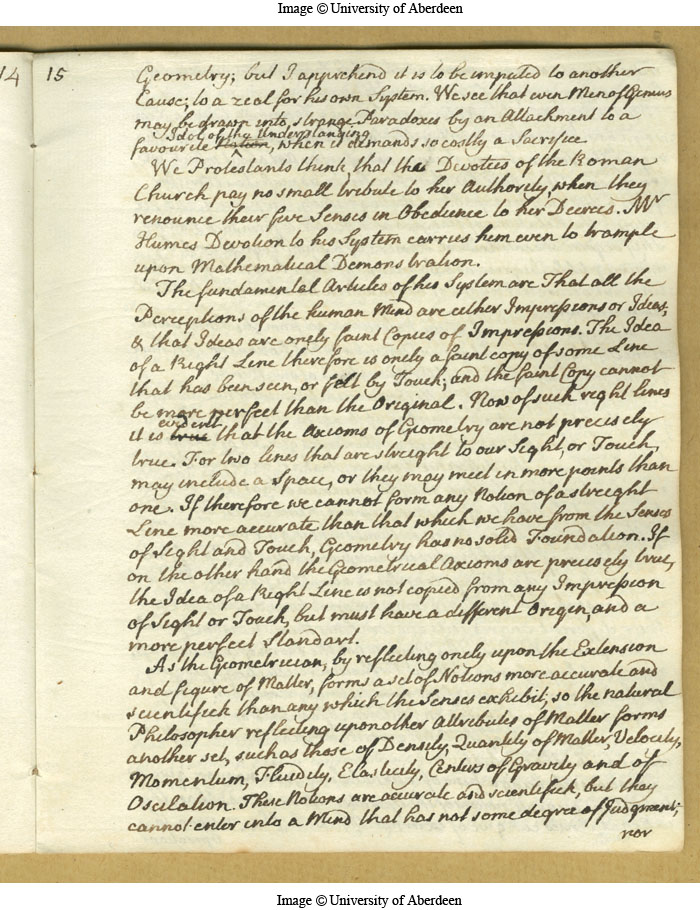 Image © University of Aberdeen
14 15
Geometry; but I apprehend it is to be imputed to another
Cause; to a zeal for his own System. We see that even Men of Genius
may be drawn into strange Paradoxes by an Attachment to a
Idol of the Understanding
favourite , when it demands so costly a Sacrifice
We Protestants think, that the Devotees of the Roman
Church pay no small tribute to her Authority, when they
renounce their five Senses in Obedience to her Decrees. Mr
Humes Devotion to his System carries him even to trample
upon Mathematical Demonstration.
The fundamental Articles of his System are That all the
Perceptions of the human Mind are either Impressions or Ideas,
& that Ideas are onely faint Copies of Impressions. The Idea
of a Right Line therefore is onely a faint copy of some Line
that has been seen, or felt by Touch; and the faint Copy cannot
be more perfect than the Original. Now of such right lines
evident
it is true that the Axioms of Geometry are not precisely
true. For two lines that are streight to our Sight, or Touch,
may include a Space, or they may meet in more points than
one. If therefore we cannot form any Notion of a streight
Line more accurate than that which we have from the Senses
of Sight and Touch, Geometry has no solid Foundation. If
on the other hand the Geometrical Axioms are precisely true,
the Idea of a Right Line is not copied from any Impression
of Sight or Touch, but must have a different Origin, and a
more perfect Standart.
As the Geometrician, by reflecting onely upon the Extension
and figure of Matter, forms a set of Notions more accurate and
scientifick than any which the Senses exhibit; so the natural
Philosopher reflecting upon other Attributes of Matter forms
another set, such as those of Density, Quantity of Matter, Velocity,
Momentum, Fluidity, Elasticity, Centers of Gravity and of
Oscilation. These Notions are accurate and scientifick, but they
cannot enter into a Mind that has not some degree of Judgment;
nor
Image © University of Aberdeen